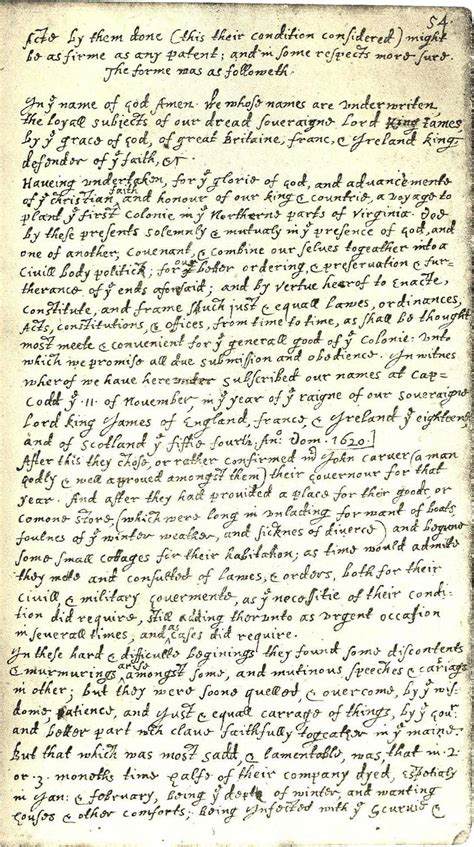 54
Acts by them done (this their condition considered) might
be as firme as any patent; and in some respects more sure.
The forme was as followeth.
In yͤ name of god Amen. We whose names are underwriten,
the loyall subjects of our dread soveraigne Lord King James
by yͤ grace of god, of great Britaine, franc, & Ireland king,
defender of yͤ faith, &c
Haveing undertaken, for yͤ glorie of god, and advancemente
of yͤ christian faith and honour of our king & countrie, a voyage to
plant yͤ first colonie in yͤ Northerne parts of Virginia. Doe
by these presents solemnly & mutualy in yͤ presence of god, and
one of another, covenant, & combine our selves togeather into a
Civill body politick; for our better ordering, & preservation & fur-
therance of yͤ ends aforesaid; and by vertue hearof to Enacte,
constitute, and frame such just & equall lawes, ordinances,
Acts, constitutions, & offices, from time to time, as shall be thought
most meete & convenient for yͤ generall good of yͤ Colonie: unto
which we promise all due submission and obedience. In witnes
wherof we have hereunder subscribed our names at Cap-
Codd yͤ .11. of November, in yͤ year of yͤ raigne of our soveraigne
Lord king James of England, france, & Ireland yͤ eighteenth
and of Scotland yͤ fiftie fourth. Ano: Dom. 1620.]
After this they chose, or rather confirmed mͬ John Carver (a man
godly & well approved amongst them) their governour for that
year. And after they had provided a place for their goods, or
comone store, (which were long in unlading for want of boats,
foulnes of yͤ winter weather, and sicknes of diverce) and begune
some small cottages for their habitation; as time would admite
they mete and consulted of lawes, & orders, both for their
civill & military govermente, as yͤ necessitie of their condi-
tion did require, still adding therunto as urgent occasion
in severall times, and as cases did require.
In these hard & difficulte beginings they found some discontents
& murmurings arise amongst some, and mutinous speeches & cariags
in other; but they were soone quelled, & overcome, by yͤ wis-
dome, patience, and just & equall carrage of things, by yͤ Govͬ
and better part wͨͪ clave faithfully togeather in yͤ maine.
But that which was most sadd, & lamentable, was, that in .2.
or .3. moneths time halfe of their company dyed, espetialy
in Jan: & february, being yͤ depth of winter, and wanting
houses & other comforts; being Infected with yͤ scurvie &